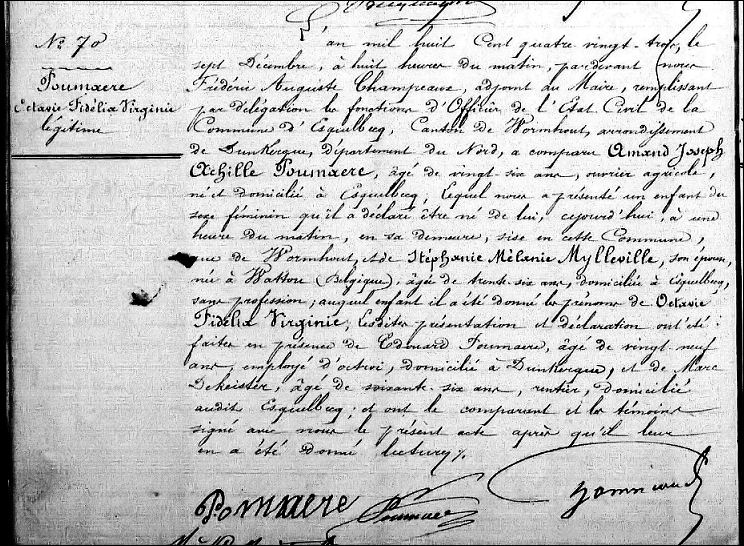 No 70
Poumaere
Octavie Fidélia Virginie
légitime
L'an mil huit Cent quatre vingt-trois, le
sept Décembre, à huit heures du matin, pardevant nous
Frédéric Auguste Champeaux, adjoint au Maire, remplissant
par délégation les fonctions d'Officier de l'État Civil de la
Commune d'Esquelbecq, Canton de Wormhout, arrondissement
de Dunkerque, département du Nord, a comparu Amand Joseph
Achille Poumaere, âgé de vingt-six ans, ouvrier agricole,
né et domicilié à Esquelbecq, lequel nous a présenté un enfant du
sexe féminin qu'il a déclaré être né de lui, cejourd'hui, à une
heure du matin, en sa demeure, sise en cette Commune,
rue de Wormhout, et de Stéphanie Mélanie Mylleville, son épouse,
née à Watou (Belgique), âgée de trente-six ans, domiciliée à Esquelbecq,
sans profession; auquel enfant il a été donné les prénoms de Octavie
Fidélia Virginie, Lesdites présentation et déclaration ont été
faites en présence de Edouard Poumaere, âgé de vingt-neuf
ans, employé d'octroi, domicilié à Dunkerque, et de Marc
Dekeister, âgé de soixante-six ans, rentier, domicilié
audit Esquelbecq; et ont le comparant et les témoins
signé avec nous le présent acte après qu'il leur
en a été donné lecture.
Poumaere Poumaere